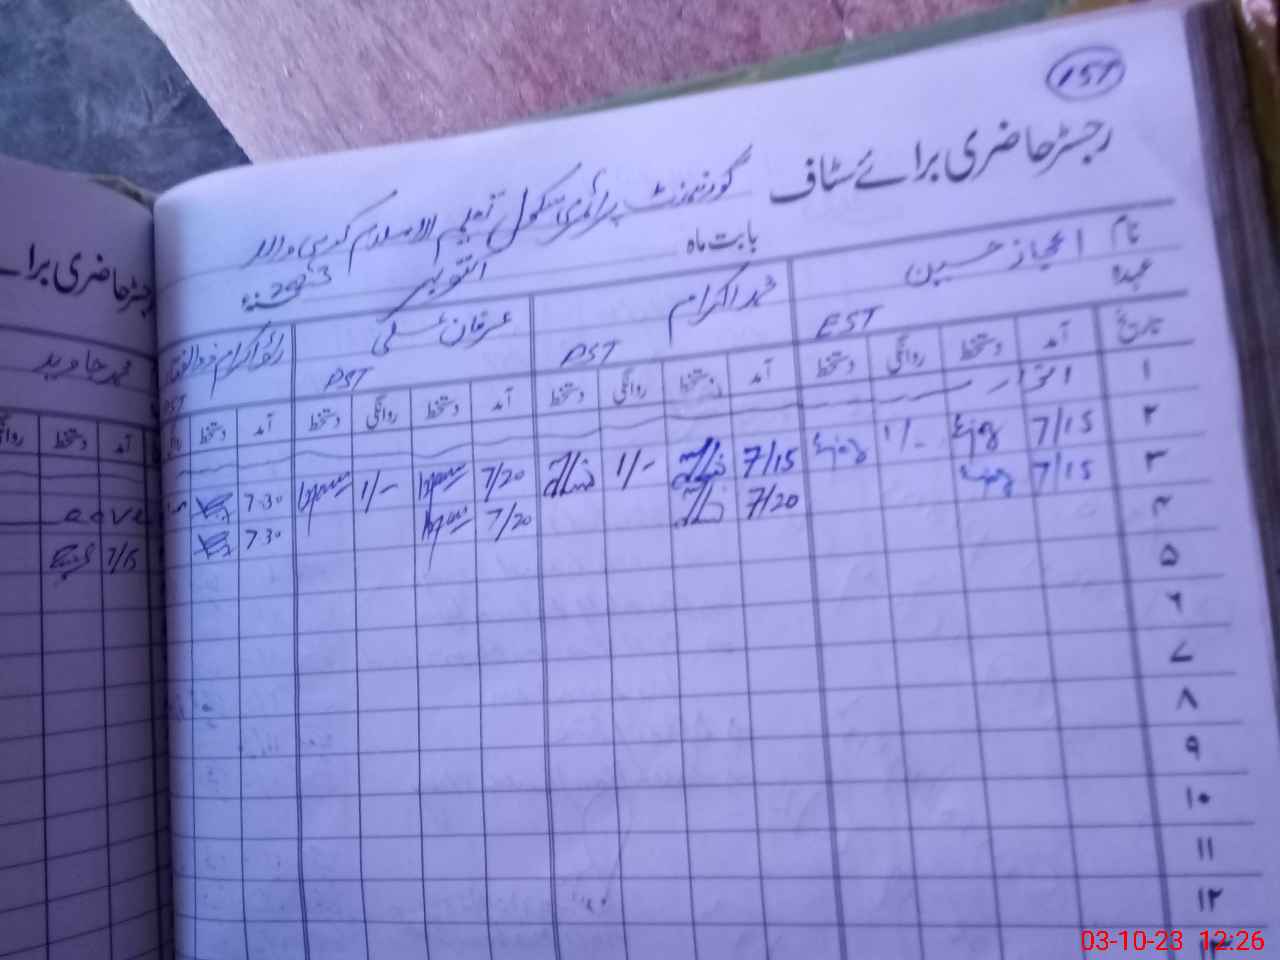 157
رجسٹر حاضری برائے سٹاف گورنمنٹ پرائمری سکول تعلیم الاسلام
بابت ماہ اکتوبر 2023
نام اعجاز حسین محمد اکرام عرفان علی
عہدہ EST PST PST
تاریخ آمد دستخط روانگی دستخط آمد دستخط روانگی دستخط آمد دستخط روانگی دستخط آمد دستخط
۱ اتوار
۲ 7/15 Ejaz 1/- Ejaz 7/15 1/- 7/20 1/- 7.30
۳ 7/15 Ejaz 7/20 7/20 7.30
۴
۵
۶
۷
۸
۹
۱۰
۱۱
۱۲
۱۳
رجسٹر حاضری برا
محمد جاوید
آمد دستخط
Leave
7/15
03-10-23 12:26